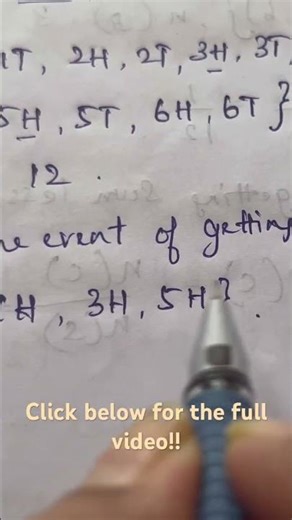 1T, 2H, 2T, 3H, 3T,
5H, 5T, 6H, 6T}
12.
the event of getting
H, 3H, 5H}.
Click below for the full
video!!